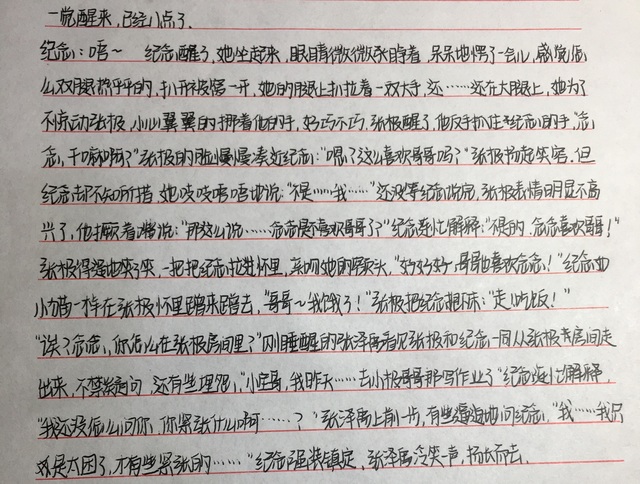 一觉醒来，已经八点了.
纪念：唔～ 纪念醒了，她坐起来，眼睛微微张睁着，呆呆地愣了一会儿，感觉怎
么双腿热乎乎的，扒开被窝一开，她的腿上扒拉着一双大手，还……还在大腿上，她为了
不惊动张极，小心翼翼的挪着他的手，好巧不巧，张极醒了，他反手抓住纪念的手，"念
念，干嘛啊？"张极的脸慢慢凑近纪念："嗯？这么喜欢哥哥吗？"张极扬起笑容，但
纪念却不知所措，她吱吱唔唔地说："不是……我……"还没等纪念说完，张极表情明显不高
兴了，他撅着嘴说："那这么说……念念是不喜欢哥哥了？"纪念连忙解释："不是的，念念喜欢哥哥！"
张极得逞地笑了笑，一把把纪念拉进怀里，亲吻她的额头，"好好好~哥哥也喜欢念念！"纪念如
小猫一样在张极怀里蹭来蹭去，"哥哥~我饿了！"张极把纪念抱下床："走！吃饭！"
"诶？念念，你怎么在张极房间里？"刚睡醒的张泽禹看见张极和纪念一同从张极房间走
出来，不禁疑问，还有些埋怨，"小宝哥，我昨天……去小极哥哥那写作业了"纪念连忙解释，
"我还没怎么问你，你紧张什么啊……？"张泽禹上前一步，有些逼迫地问纪念，"我……我只
是太困了，才有些紧张的……"纪念强装镇定，张泽禹冷笑一声，扬长而去.